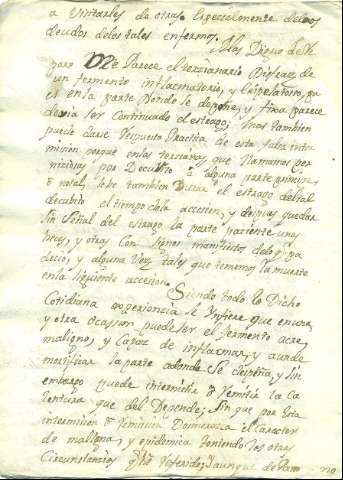 a Visitarles de otras Especialmente de los
deudos de los tales enfermos.
Mas Digno de Re
paro Me Parece el terzianario Disfraz de
un fermento inflamatorio, y Exipelatoso, pues
si en la parte donde se depone, y fixa parece
devia ser Continuado el estrago; Mas tambien
puede darse Respuesta Practica de esta falsa intro
mision porque en las tercianas, que llamamos per
niciosas por Decubito à alguna parte principe,
ò notal, debe tambien Durar el estrago del tal
decubito el tiempo de la accesion, y despues quedar
sin señal del estrago la parte paciente unas
veces, y otras Con signos manifiestos de lo que pa
decio, y alguna Vez tales que tememos la muerte
en la siguiente accesion.
Siendo todo lo Dicho
Cotidiana experiencia se infiere que en una,
y otra ocasion puede ser el fermento acre,
maligno, y Capaz de inflamar, y aun de
mortificar la parte adonde se despeña, y sin
embargo puede intermitir ò Remitir la Ca
lentura que del Depende; sin que por esta
intermision ò Remision Desmerezca el Caracter
de maligna, y epidemica teniendo las otras
Circunstancias Referidas; y aunque de